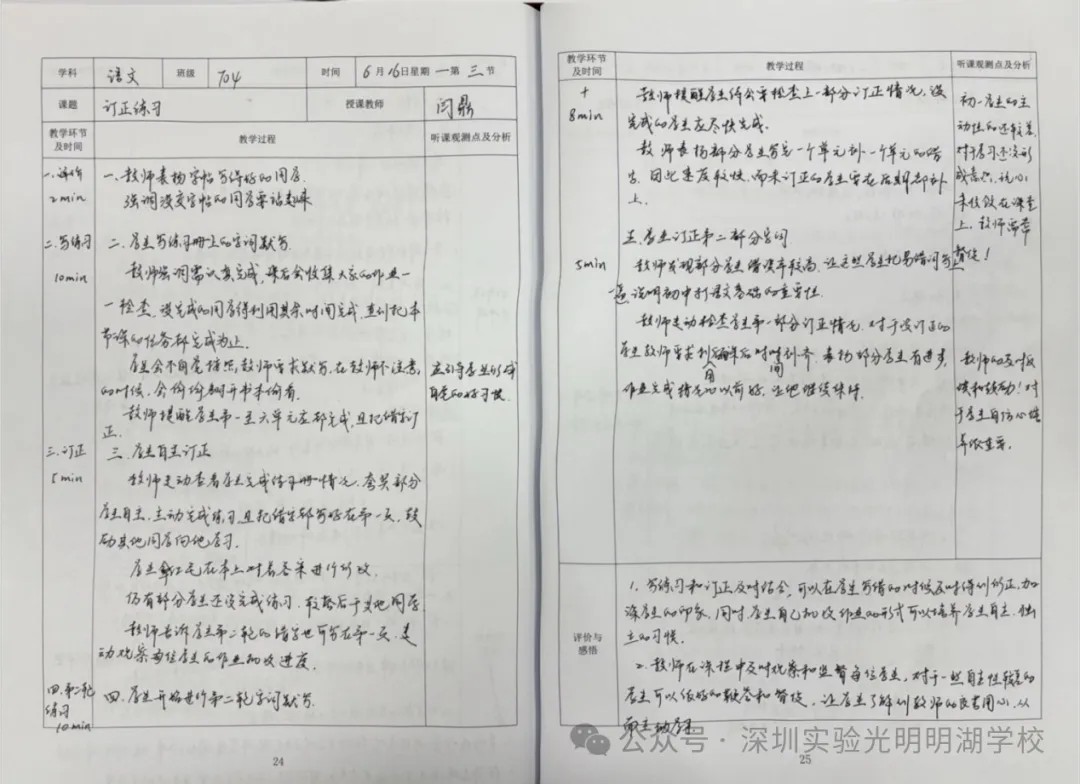 学科 语文 班级 704 时间 6月16日星期一第三节
课题 订正练习 授课教师 闫鼎
教学环节及时间 教学过程 听课观测点及分析
一、评价 一、教师表扬字帖写得好的同学.
2min 强调没交字帖的同学要站起来
二、写练习 二、学生写练习册上的字词默写.
10min 教师强调需认真完成,课后会收集大家的作业一
一检查.没完成的同学得利用其余时间完成,直到把本
节课的任务都完成为止.
学生会不自觉,教师要求默写,在教师不注意
的时候,会偷偷翻开书本偷看.
应引导学生形成
自觉的好习惯.
教师提醒学生第一至六单元应都完成,且把错字订
正.
三.订正 三.学生自主订正
5min 教师走动查看学生完成练习册情况,夸奖部分
学生自主、主动完成练习,且把错字都写好在第一页,鼓
励其他同学向他学习.
学生红笔在本上对着答案进行修改.
仍有部分学生还没完成练习,较落后于其他同学.
教师告诉学生第二轮的错字也可写在第一页,走
动观察每位学生的作业批改进度.
四.第二轮 四.学生开始进行第二轮字词默写.
练习
10min
24
教学环节及时间 教学过程 听课观测点及分析
+ 教师提醒学生待会要检查上一部分订正情况,没
8min 完成的学生应尽快完成.
教师表扬部分学生写完一个单元补一个单元的错
字.因此速度较慢,而未订正的学生需在后期都补
上.
初一学生的主
动性的还较差,
对于学习还没形
成意识,说心
未收敛在课堂
上,教师需常
督促!
五.学生订正第二部分字词
5min 教师发现部分学生错误率较高,让这些学生把易错词写
一遍,说明初中打语文基础的重要性.
教师走动检查学生第一部分订正情况.对于没订正的
学生教师要求利用课后时间补齐,表扬部分学生有进步,
作业完成情况比以前好,让他继续保持.
教师的及时反
馈和鼓励!对
于学生自信心培
养很重要.
评价与感悟
1.写练习和订正及时结合,可以在学生写错的时候及时得到修正,加
深学生的印象.同时,学生自己批改作业的形式可以培养学生自主、独
立的习惯.
2.教师在课程中及时观察和监督每位学生,对于一些自主性较差的
学生可以很好的鞭策和督促.让学生了解到教师的良苦用心,从
公众号·深圳实验光明明湖学校
25